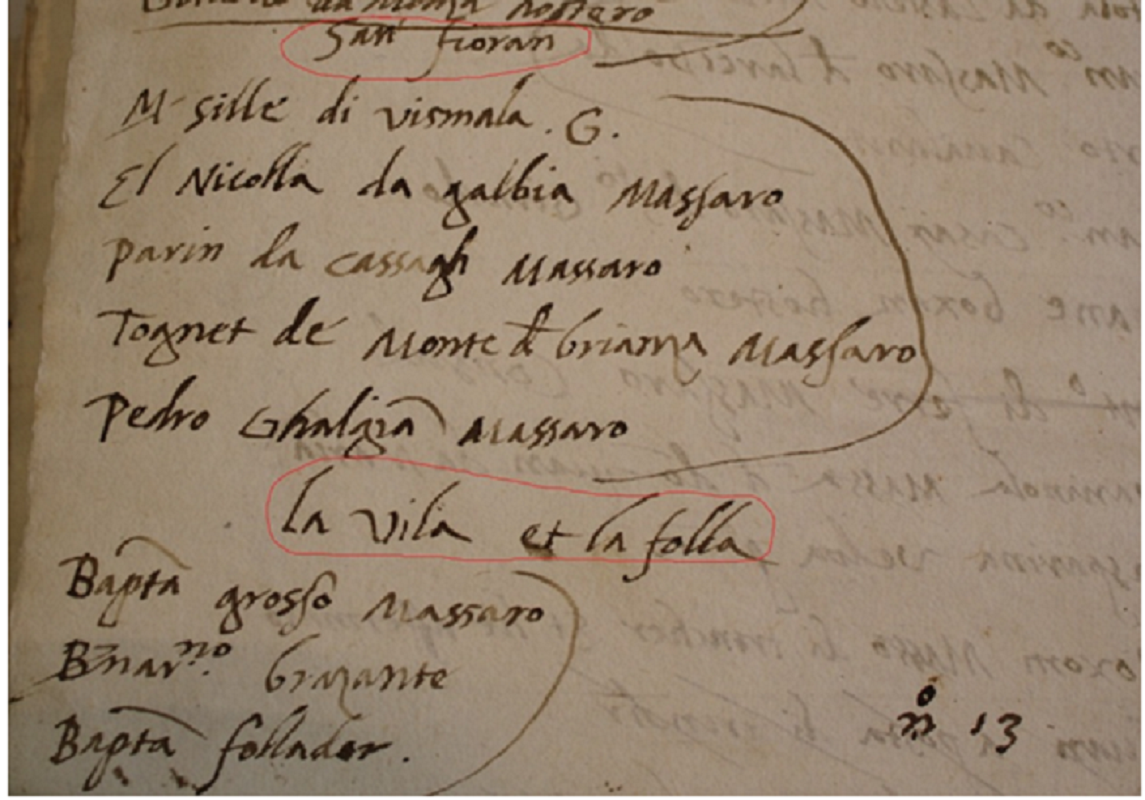 da monza hostero
San fioran
M. sille di vismala . G.
El Nicolla da galbia Massaro
parin da cassagh Massaro
Tognet de Monte d brianza Massaro
Pedro Ghalgiā Massaro
la vila et la folla
Baptā grosso Massaro
B̄nar^no. brazante
Baptā follador .
n° 13